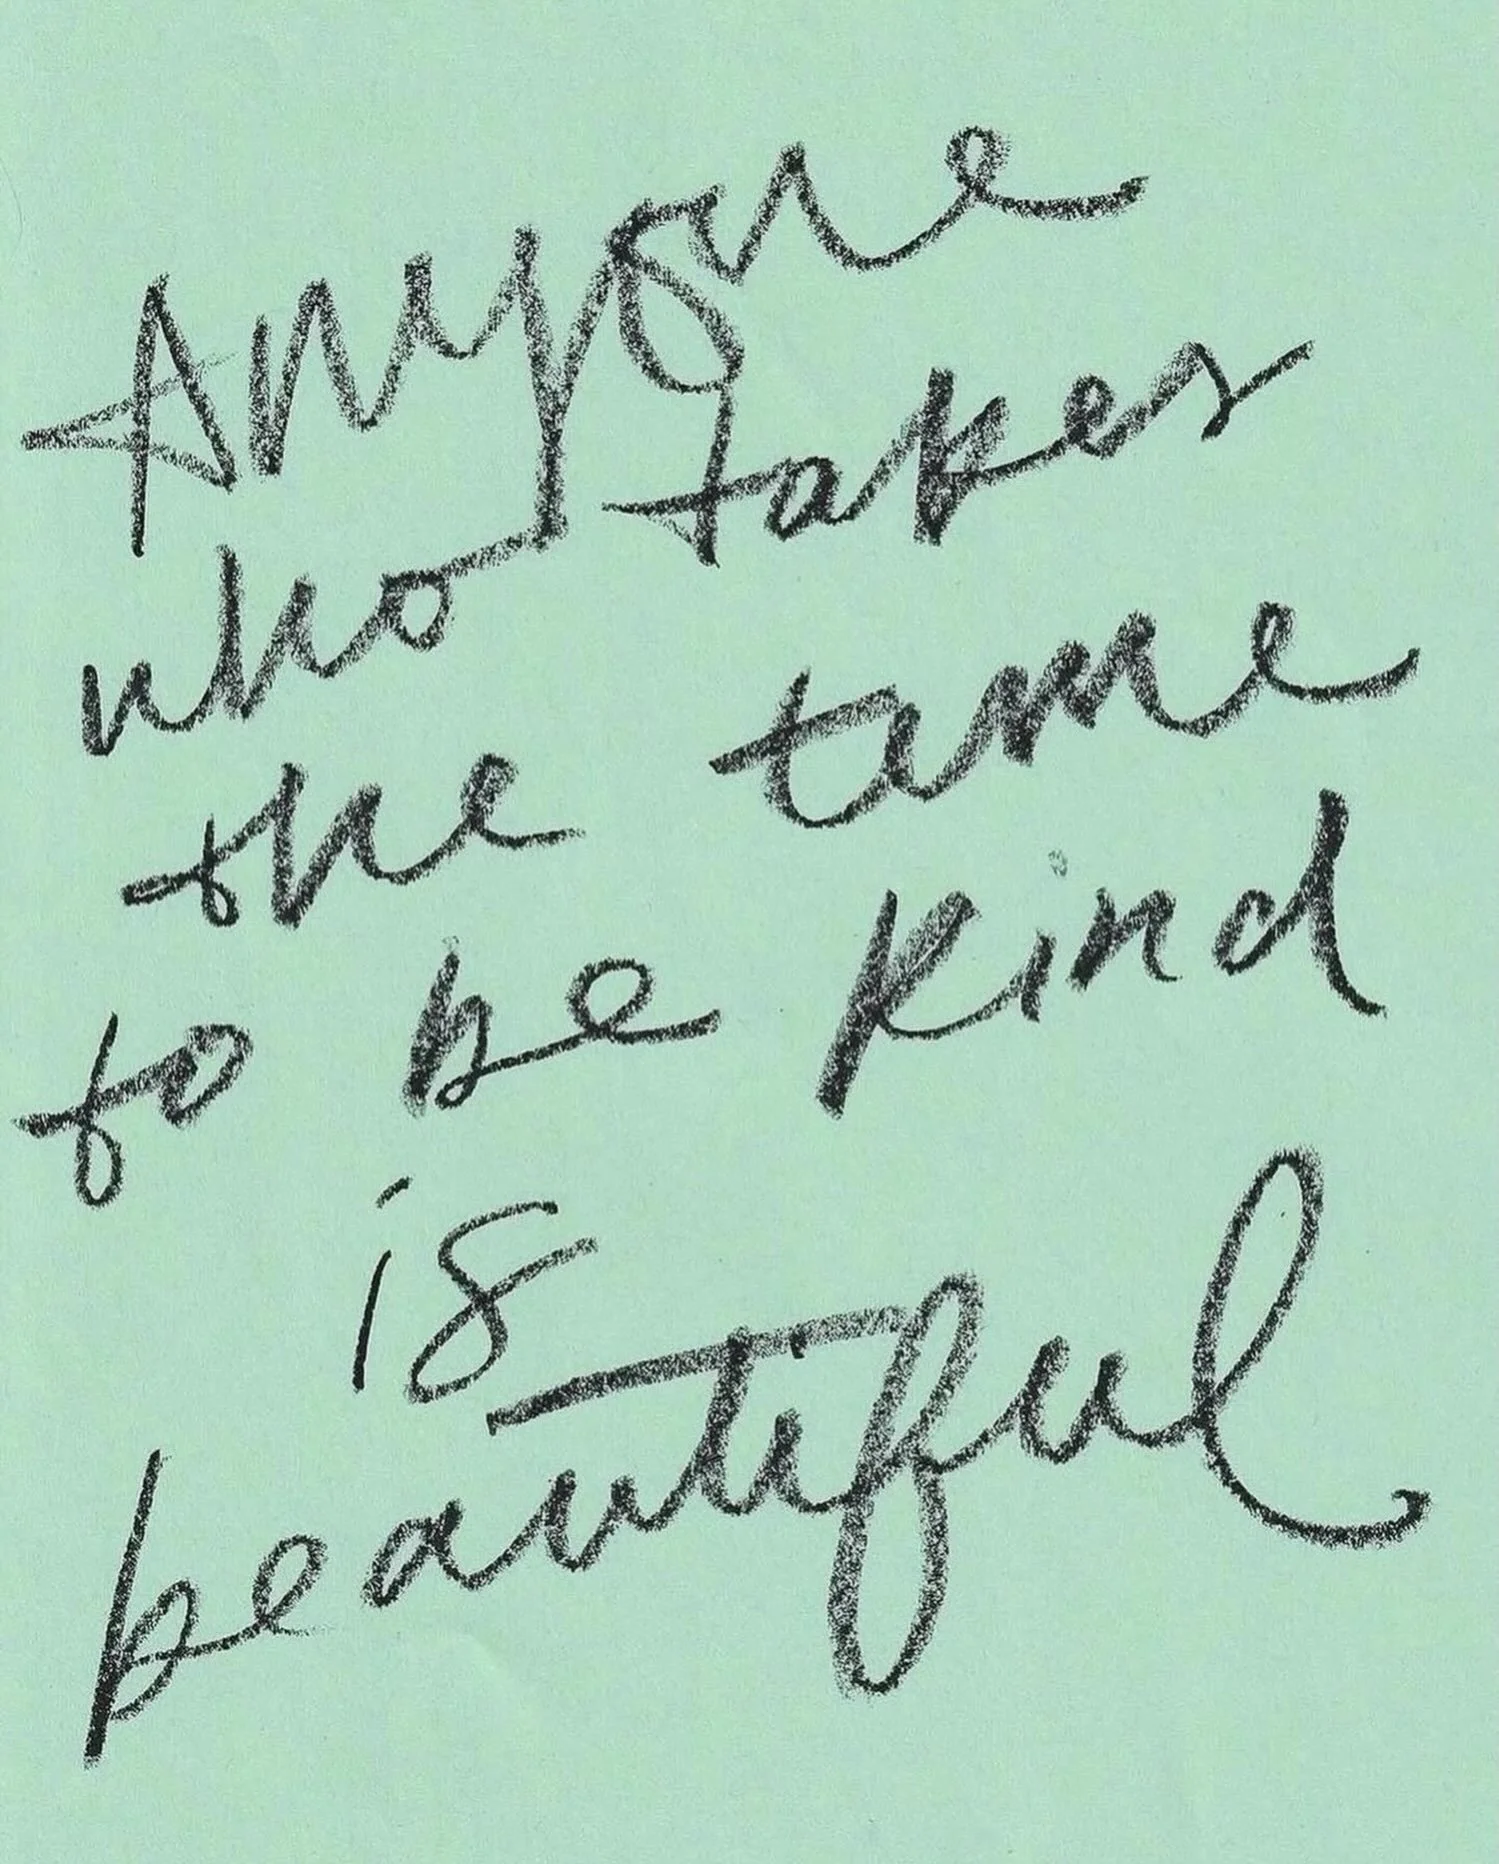 Anyone
who takes
the time
to be kind
is
beautiful